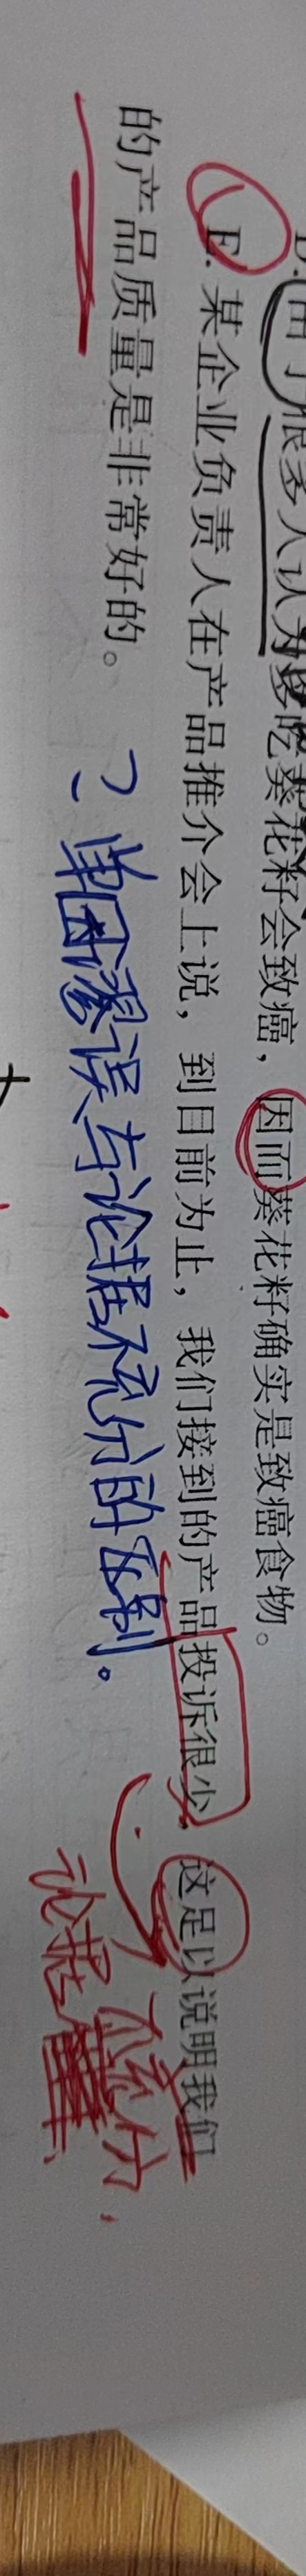 D.由于很多人认为多吃葵花籽会致癌，因而葵花籽确实是致癌食物。
E.某企业负责人在产品推介会上说，到目前为止，我们接到的产品投诉很少，这足以说明我们
的产品质量是非常好的。
？单因谬误与论据不充分的区别。
不充分.
论据